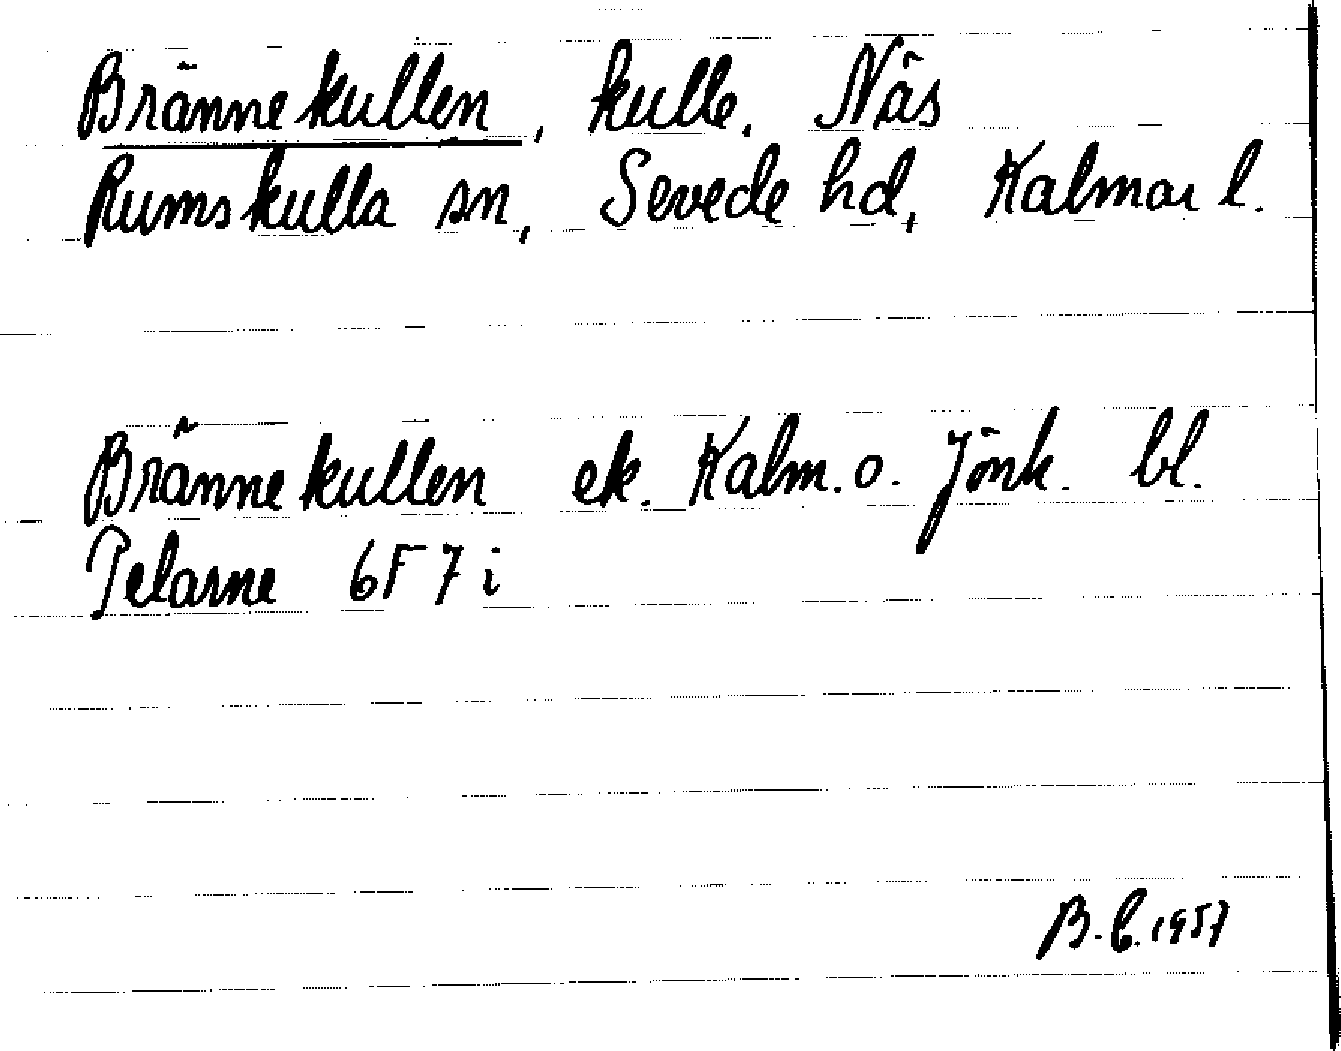 Brännekullen, kulle. Näs
Rumskulla sn, Sevede hd, Kalmar l.
Brännekullen ek. Kalm. o. Jönk. bl.
Pelarne 6F7i
B.C. 1957